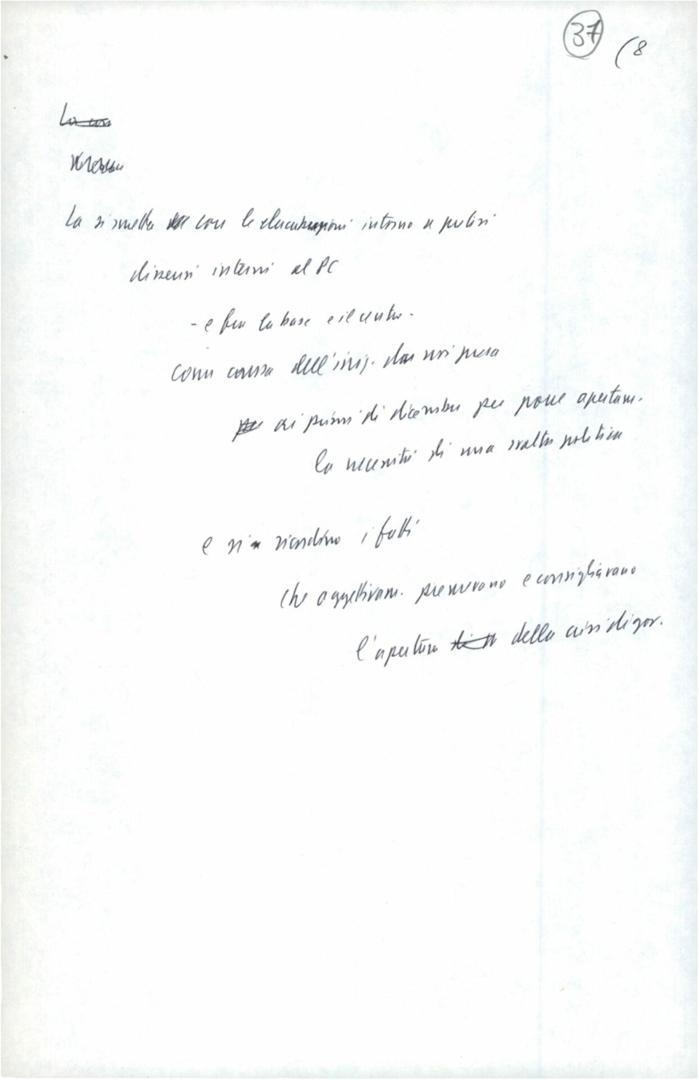 37 (8
La si smetta con le elucubrazioni intorno a pretesi
dissensi interni al PC
- e fra la base e il centro -
come causa dell'iniz. da noi presa
ai primi di dicembre per porre apertam.
la necessità di una svolta politica
e si ricordino i fatti
che oggettivam. premevano e consigliavano
l'apertura della crisi di gov.